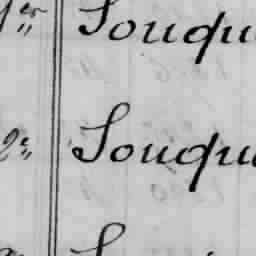 1er Souqu
2e Souqu